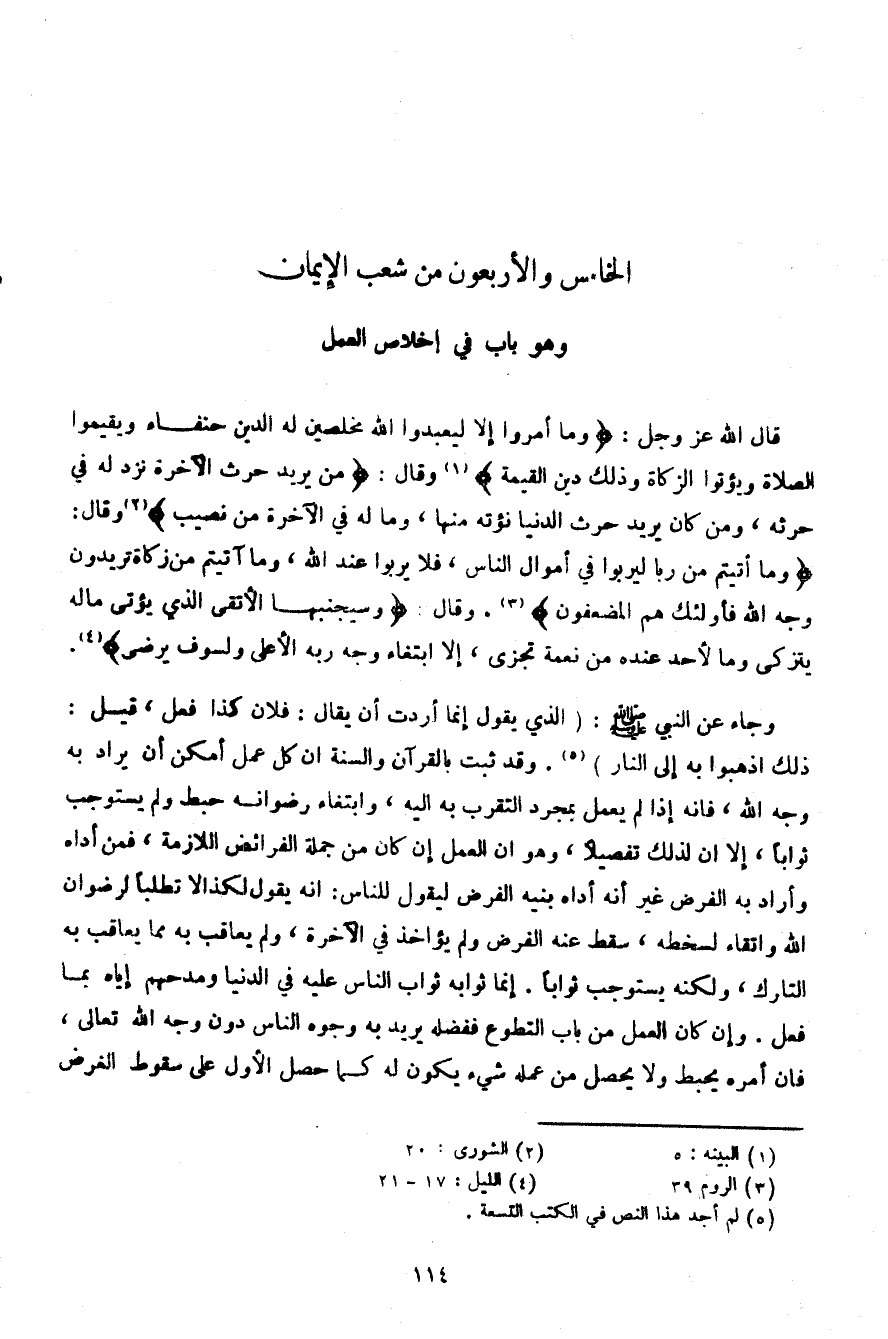 الخامس والأربعون من شعب الإيمان
وهو باب في إخلاص العمل
قال الله عز وجل : ﴿ وما أمروا إلا ليعبدوا الله مخلصين له الدين حنفاء ويقيموا
الصلاة ويؤتوا الزكاة وذلك دين القيمة ﴾ (١) وقال : ﴿ من يريد حرث الآخرة نزد له في
حرثه ، ومن كان يريد حرث الدنيا نؤته منها ، وما له في الآخرة من نصيب ﴾(٢) وقال:
﴿ وما أتيتم من ربا ليربوا في أموال الناس ، فلا يربوا عند الله ، وما آتيتم من زكاة تريدون
وجه الله فأولئك هم المضعفون ﴾ (٣) . وقال : ﴿ وسيجنبها الأتقى الذي يؤتى ماله
يتزكى وما لأحد عنده من نعمة تجزى ، إلا ابتغاء وجه ربه الأعلى ولسوف يرضى﴾(٤).
وجاء عن النبي ﷺ : ( الذي يقول إنما أردت أن يقال : فلان كذا فعل ، قيل :
ذلك اذهبوا به إلى النار ) (٥) . وقد ثبت بالقرآن والسنة ان كل عمل أمكن أن يراد به
وجه الله ، فانه إذا لم يعمل بمجرد التقرب به اليه ، وابتغاء رضوانه حبط ولم يستوجب
ثواباً ، إلا ان لذلك تفصيلاً ، وهو ان العمل إن كان من جملة الفرائض اللازمة ، فمن أداه
وأراد به الفرض غير أنه أداه بنيه الفرض ليقول للناس: انه يقول لكذا لا تطلباً لرضوان
الله واتقاء لسخطه ، سقط عنه الفرض ولم يؤاخذ في الآخرة ، ولم يعاقب به مما يعاقب به
التارك ، ولكنه يستوجب ثواباً . إنما ثوابه ثواب الناس عليه في الدنيا ومدحهم إياه بما
فعل . وإن كان العمل من باب التطوع ففضله يريد به وجوه الناس دون وجه الله تعالى ،
فان أمره يحبط ولا يحصل من عمله شيء يكون له كما حصل الأول على سقوط الفرض
(١) البينه : ٥ (٢) الشورى : ٢٠
(٣) الروم ٣٩ (٤) الليل : ١٧ – ٢١
(٥) لم أجد هذا النص في الكتب التسعة .
١١٤